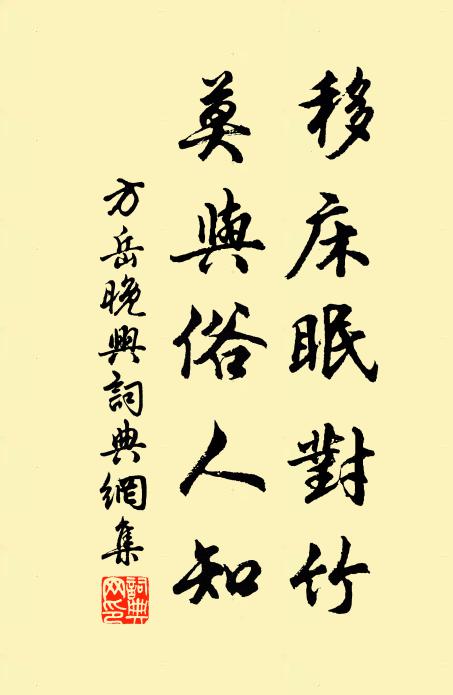 移床眠對竹
莫與俗人知
方岳晚興詞典網集
詞典網印